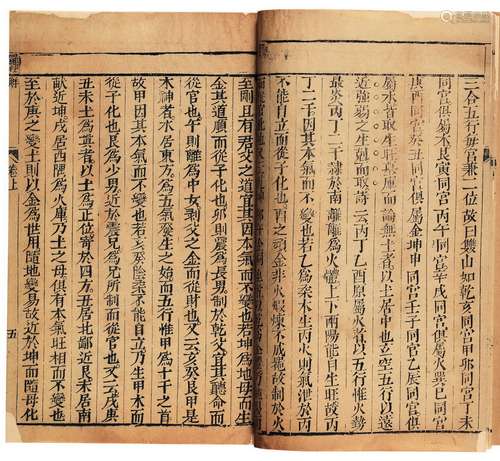 三合五行每宮兼二位故曰雙山如乾亥同宮甲卯同宮丁未
同宮俱屬木艮寅同宮丙午同宮辛戌同宮俱屬火巽巳同宮
庚酉同宮癸丑同宮俱屬金坤申同宮壬子同宮乙辰同宮俱
屬水者取生旺與庫而論無土者以土居中也玄空五行以遠
近強弱之生剋而取訣云丙丁乙酉原屬火者以五行惟火勢
最炎丙丁二干隷於南離離爲火體上下兩陽能自生旺故丙
丁二干因其本氣而不變也若乙爲柔木生丙火則氣泄於丙
不能自立而從子化也酉之頑金非火煆煉不成故制於火
至剛且有君父之道宜其因本氣而不變若坤爲地母而生
金其道順而從子化也卯則震爲長男制於乾父宜其聽命而
從官也午則離爲中女剥父之金而從財也又云亥癸艮甲是
木神者水居東方爲五氣發生之始而五行惟甲爲十干之首
故甲因其本氣而不變也若亥癸陰柔不能自立乃生甲木而
從子化也艮爲少男近於震兄爲兄所制而從官也又云戌庚
丑未土爲眞者以土爲正位寄於四方丑居北鄙近艮未居南
獻近坤戌居西隅爲火庫乃土之母俱有本氣旺相而不變也
至於庚之變土則以金爲世用隨地變易故近於坤而隨母化
卷上
五